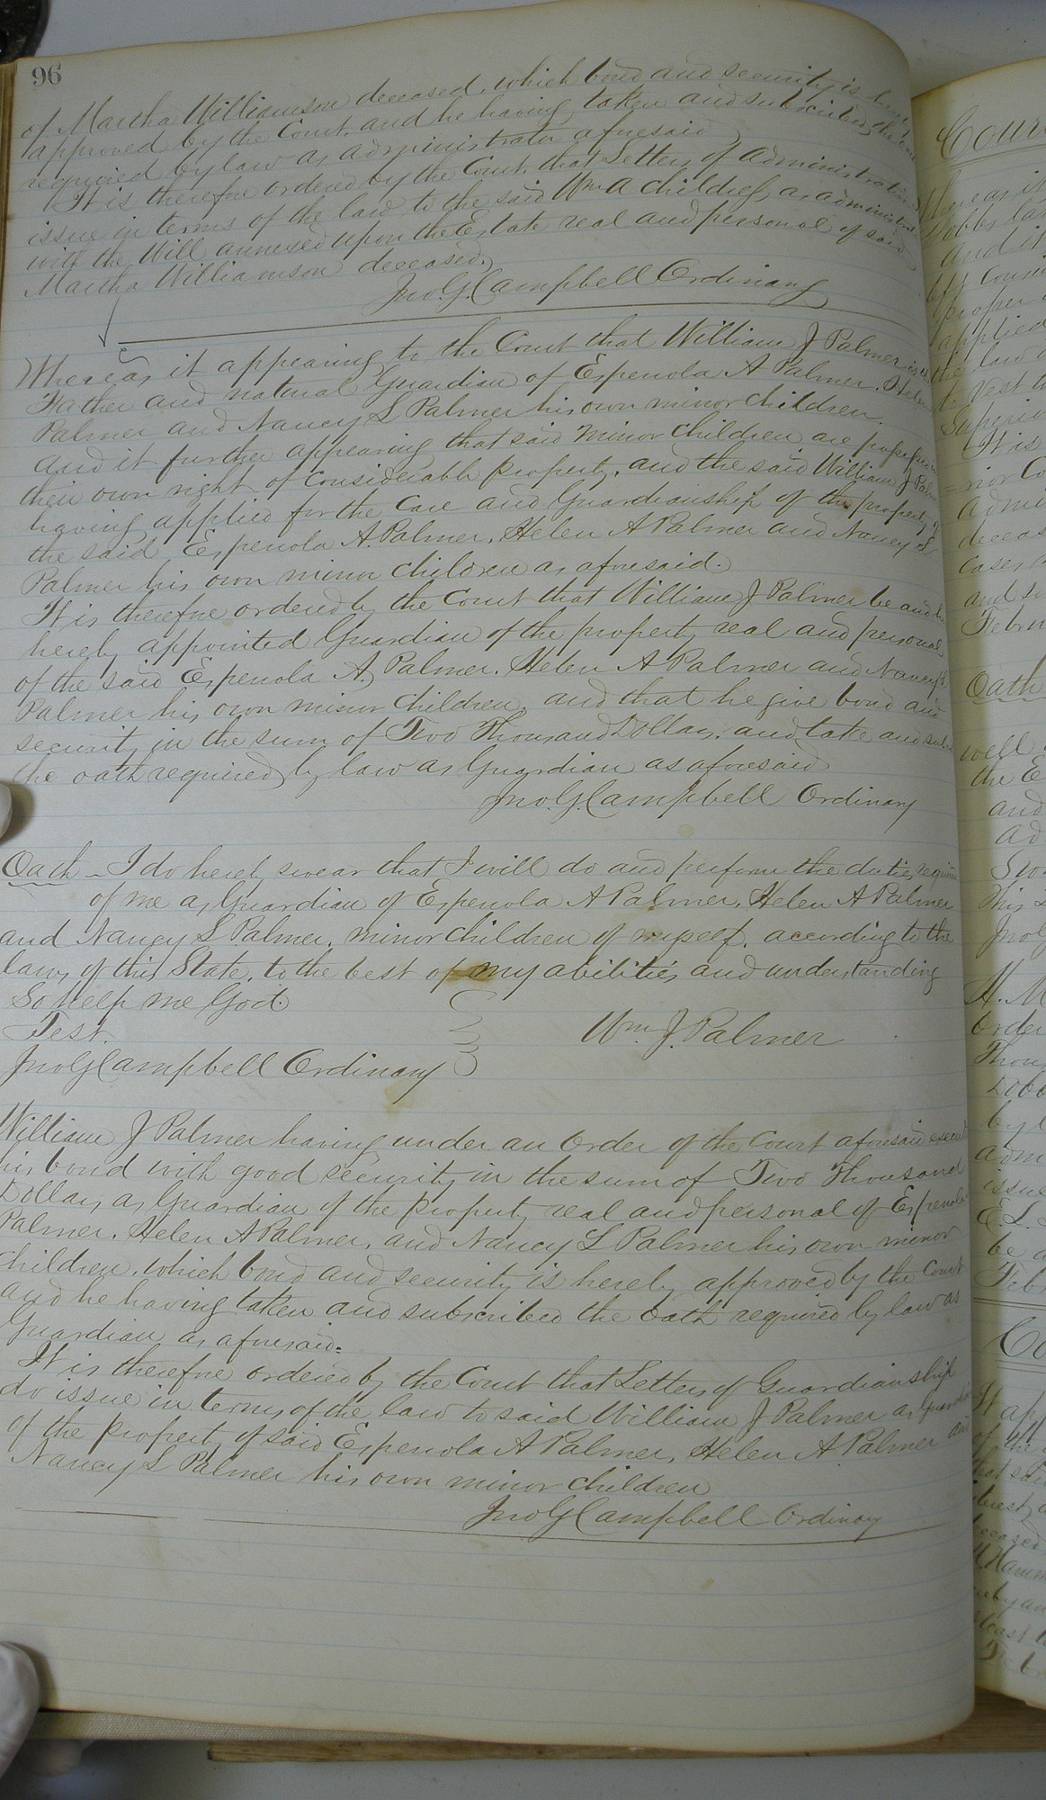 96
of Martha Williamson deceased, which bond and security is
approved by the Court, and he having taken and subscribed the oath
required by law as administrator aforesaid
It is therefore ordered by the Court that Letters of administration
issue in terms of the law to the said Wm A Childress, as administrator
with the Will annexed upon the Estate real and personal of said
Martha Williamson deceased.
Jno. G. Campbell Ordinary
Whereas it appearing to the Court that William J Palmer is
Father and natural Guardian of Espenola A Palmer, Helen
Palmer and Nancy L Palmer his own minor children.
And it further appearing that said minor children are possessed
their own right of Considerable property, and the said William J Palmer
having applied for the Care and Guardianship of the property of
the said Espenola A. Palmer, Helen A Palmer and Nancy L
Palmer his own minor children as aforesaid.
It is therefore ordered by the Court that William J Palmer be and
hereby appointed Guardian of the property real and personal
of the said Espenola A Palmer, Helen A Palmer and Nancy L
Palmer his own minor children, and that he give bond and
security in the sum of Two Thousand Dollars, and take and
the oath required by law as Guardian as aforesaid
Jno. G. Campbell Ordinary
Oath - I do hereby swear that I will do and perform the duties required
of me as Guardian of Espenola A Palmer, Helen A Palmer
and Nancy L Palmer, minor children of myself, according to the
laws of this State, to the best of my abilities and understanding
So help me God.
Test.
Wm. J. Palmer
Jno G Campbell Ordinary
William J Palmer having under an Order of the Court aforesaid
his bond with good security in the sum of Two Thousand
Dollars as Guardian of the property real and personal of Espenola
Palmer, Helen A Palmer, and Nancy L Palmer his own minor
children, which bond and security is hereby approved by the Court
and he having taken and subscribed the oath required by law as
Guardian as aforesaid:
It is therefore ordered by the Court that Letters of Guardianship
do issue in terms of the law to said William J Palmer as guardian
of the property of said Espenola A Palmer, Helen A. Palmer and
Nancy L Palmer his own minor children
Jno G Campbell Ordinary